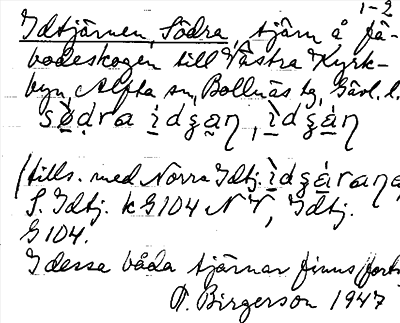 1-2
Idtjärnen, Södra, tjärn å Fä-
bodeskogen till Västra Kyrk-
byn, Alfta sn, Bollnäs tg, Gävl. l.
(tills. med Norra Idtj.
S. Idtj. k G104 NV, Idtj.
G104.
I dessa båda tjärnar finns fort.
O. Birgerson 1947